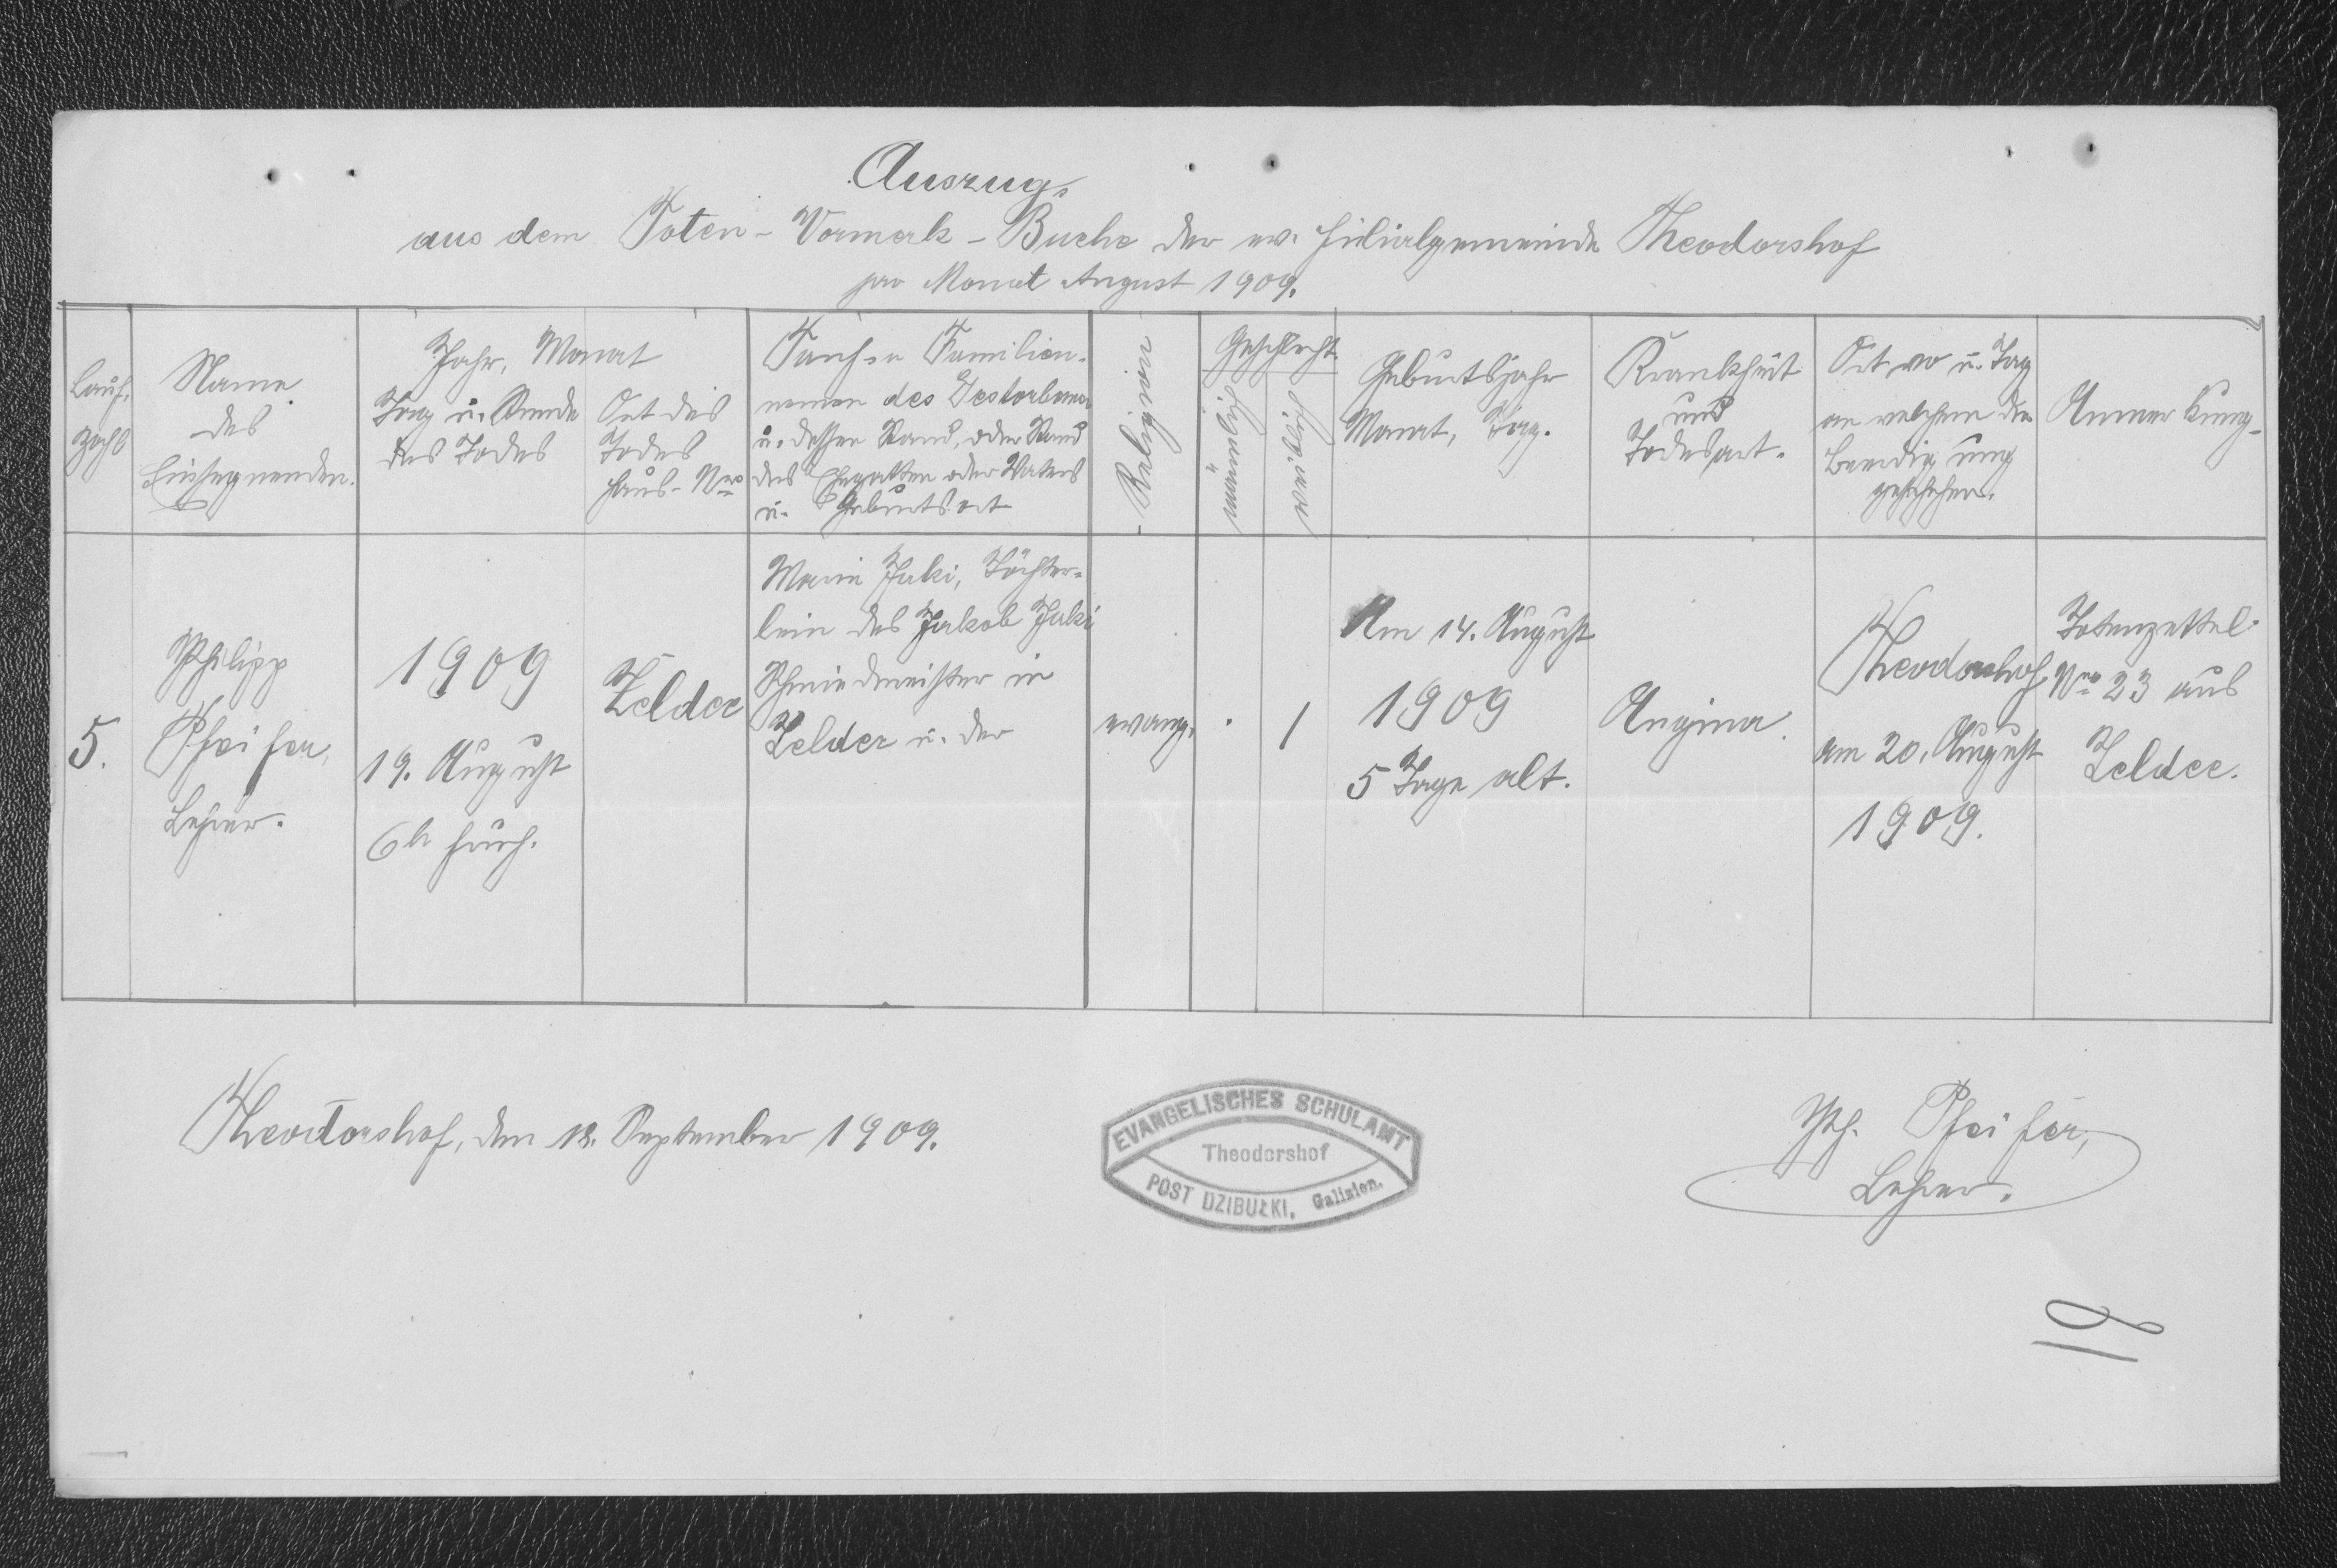 Auszug
aus dem Toten-Vormerk-Buche der ev. Filialgemeinde Theodorshof
pro Monat August 1909.
Lauf.
Zahl
Name
des
Einsegnenden.
Jahr, Monat
Tag u. Stunde
des Todes
Ort des
Todes
Haus-Nro
Tauf- u. Familien-
namen des Gestorbenen
u. dessen Stand, oder Stand
des Ehegatten oder Vaters
u. Geburtsort
Religion
Geschlecht
männlich
weiblich
Geburtsjahr
Monat, Tag.
Krankheit
und
Todesart.
Ort wo u. Tag
an welchem die
Beerdigung
geschehen.
Anmerkung
5.
Philipp
Pfeifer,
Lehrer.
1909
19. August
6h früh.
Zeldec
Marie Jaki, Töchter-
lein des Jakob Jaki
Schmiedmeister in
Zeldec u. der
evang.
1
Am 14. August
1909
5 Tage alt.
Angina.
Theodorshof
am 20. August
1909.
Totenzettel
Nro 23 aus
Zeldec.
Theodorshof, den 18. September 1909.
EVANGELISCHES SCHULAMT
Theodorshof
POST DZIBUŁKI, Galizien.
Ph. Pfeifer,
Lehrer.